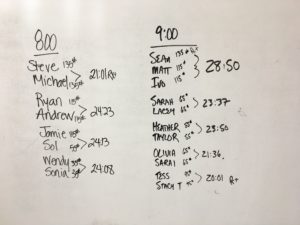 800
Steve 135#
Michael 135# > 21:01 Rx
Ryan 115#
Andrew > 24:23
Jamie
Sol > 24:13
Wendy 35#
Sonia 35# > 24:08
9:00
SEAN 135# Rx
MATT 115#
IVO 115# > 28:50
SARAH 65#
LACEY 65# > 23:37
HEATHER 55#
TAYLOR 55# > 23:50
OLIVIA 65#
SARAI 65# > 21:36
TESS
STACY T > 20:01 Rx